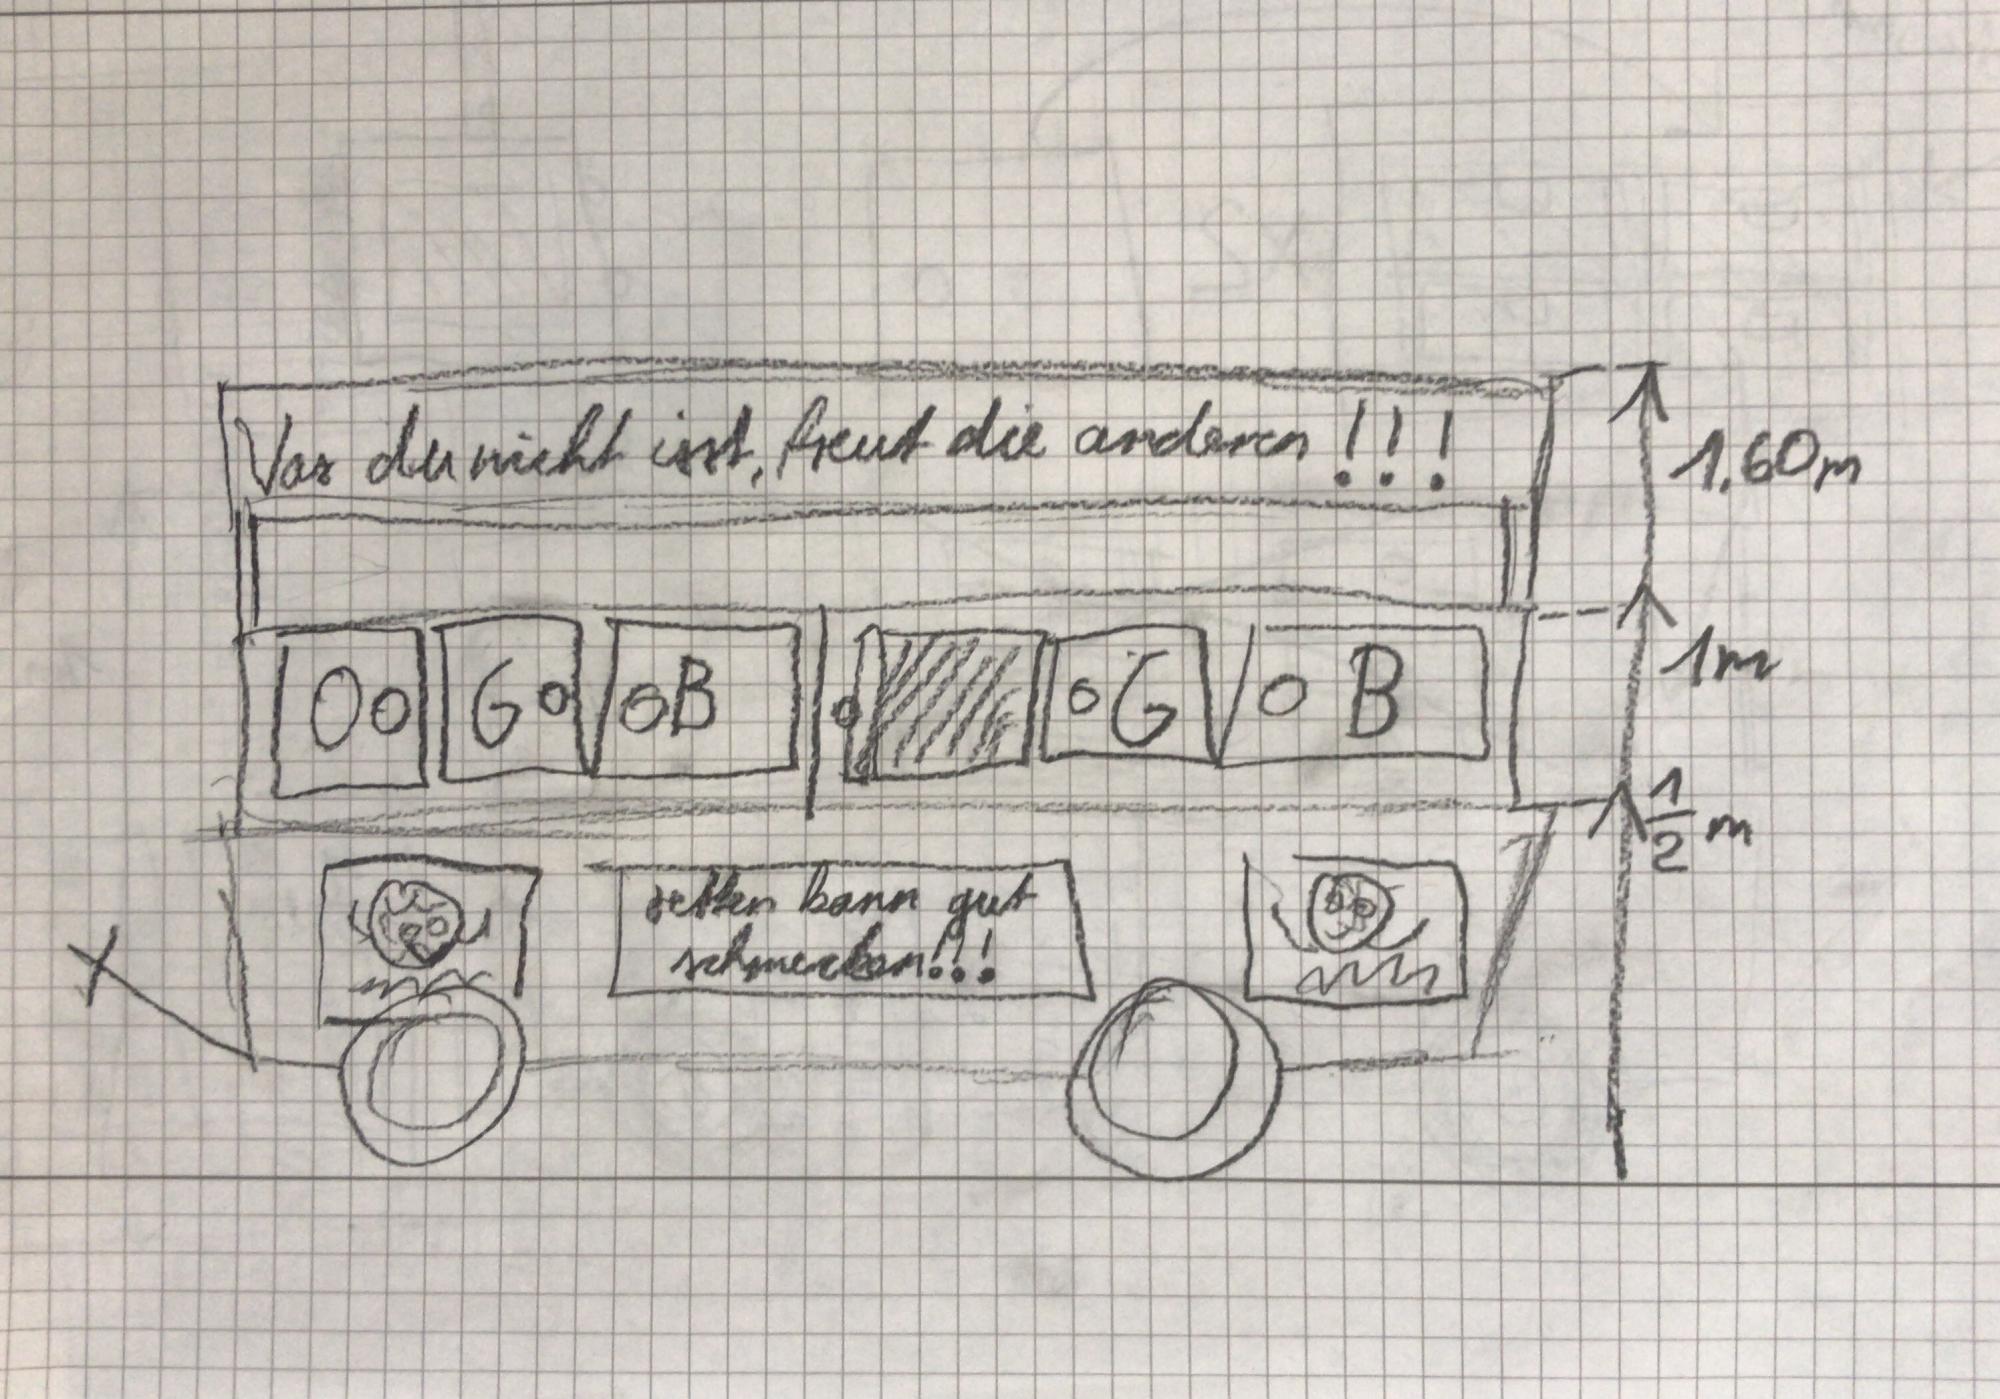 Was du nicht isst, freut die anderen!!!
1,60m
O G B G B
1m
1/2 m
retten kann gut
schmecken!!!